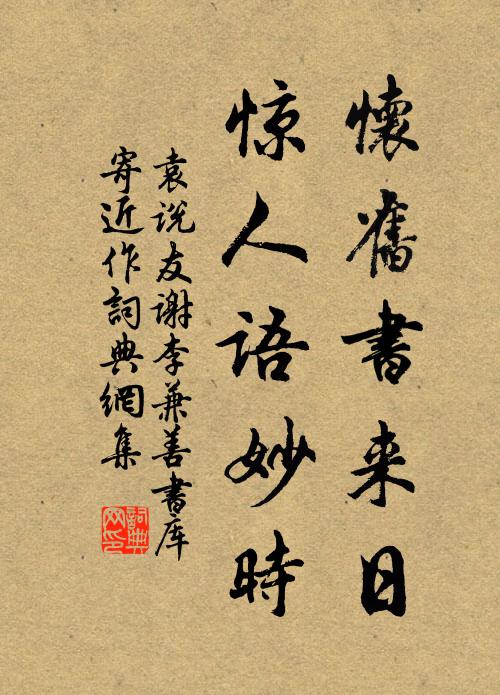 懷舊書来日
惊人语妙時
袁说友谢李兼善書库
寄近作詞典網集
詞典网印